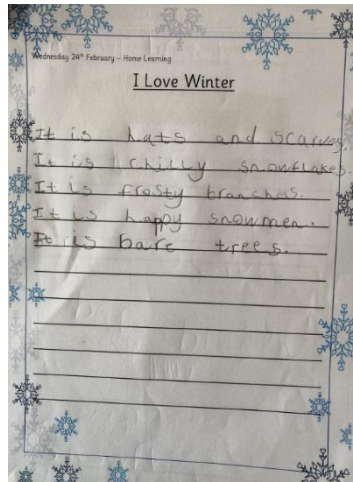 Wednesday 24th February – Home Learning
I Love Winter
It is hats and scarves.
It is chilly snowflakes.
It is frosty branches.
It is happy snowmen.
It is bare trees.